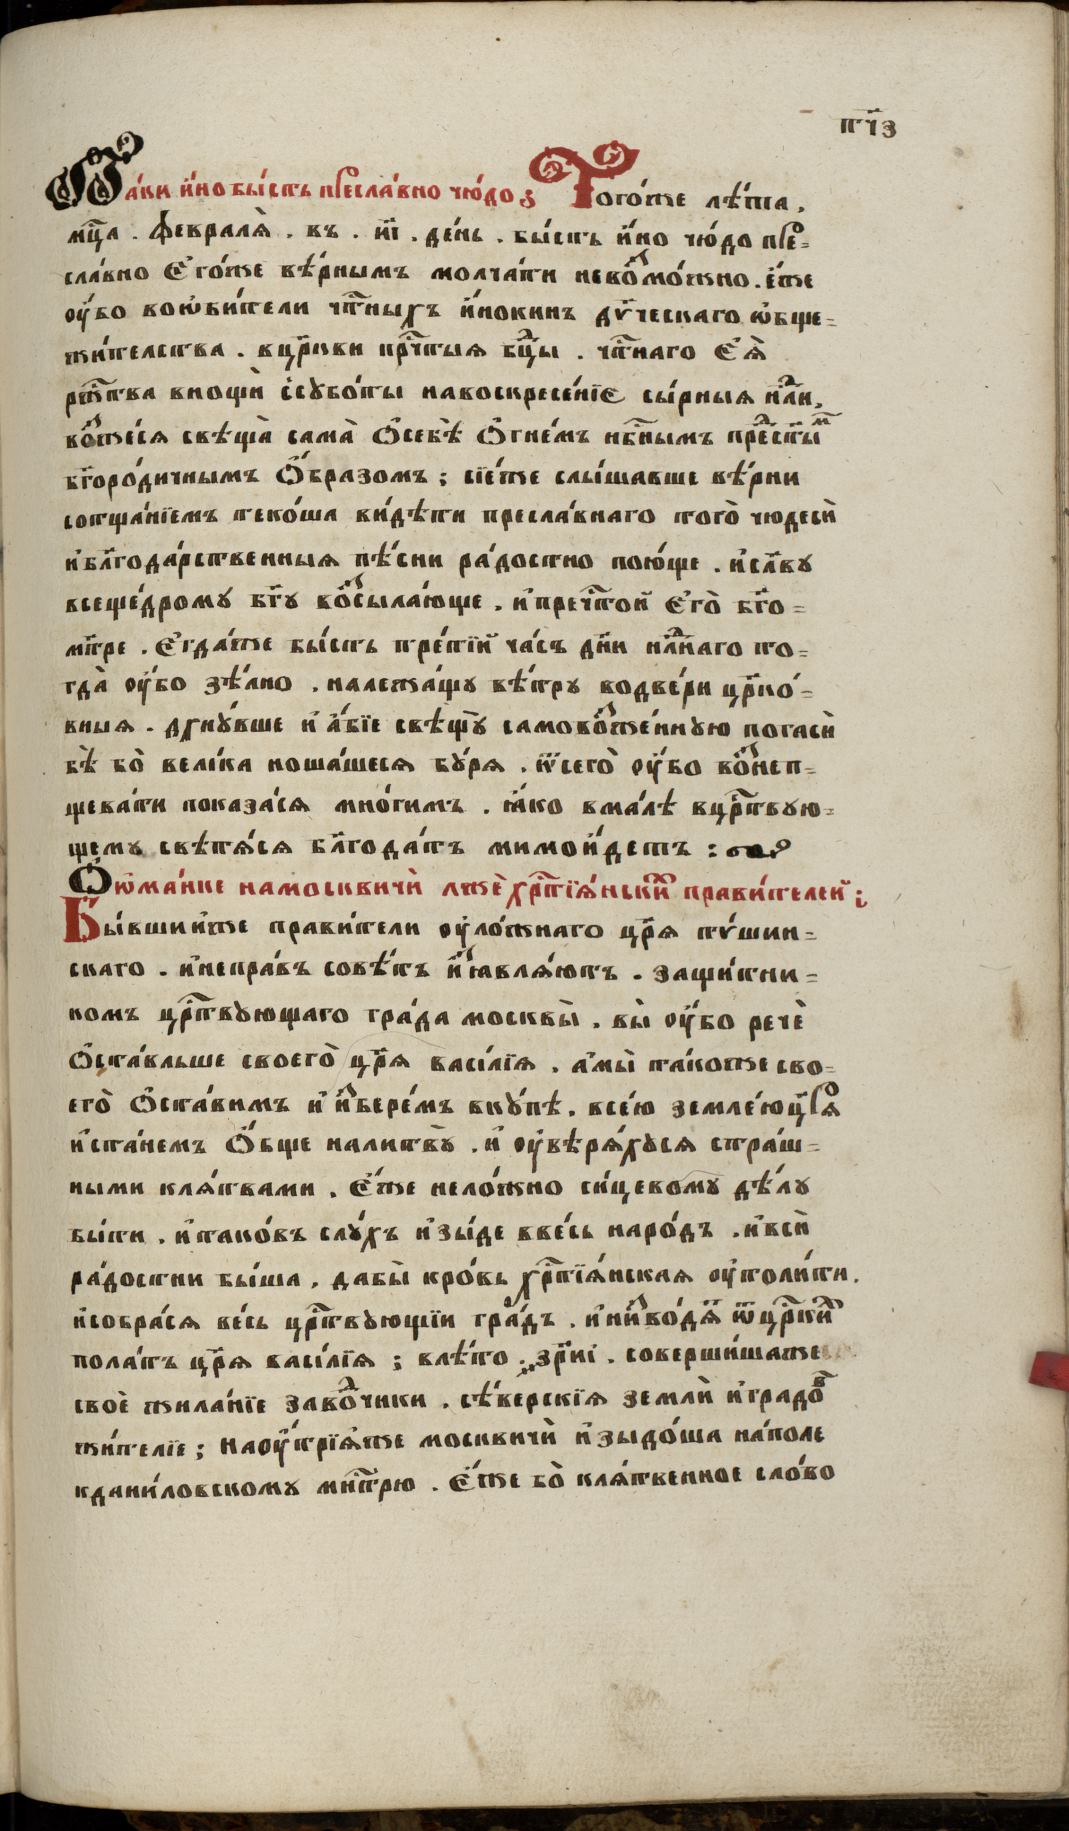 пч҃з
Па́ки и҆́но бы́сть пресла́вно чю́до; Того́же лѣ́та.
мц҃а. февралѧ̀. въ. и҃і. де́нь. бы́сть и҆́но чю́до пре-
сла́вно єго́же вѣ́рнымъ молча́ти невозмо́жно. є҆́же
оу҆́бо воѡби́тели чт҃ныхъ и҆́нокинъ дх҃ческаго ѡ҆бще-
жи́тельства. вцр҃кви прч҃тыѧ бц҃ы. чт҃наго єѧ̀
ржт҃ва внощѝ ссубо́ты навоскресе́нїє сы́рныѧ нл҃и,
возже́сѧ свѣща̀ сама̀ ѻ҆себѣ̀ ѻ҆гне́мъ нб҃нымъ прест҃ы́мъ
бг҃оро́дичнымъ ѻ҆́бразомъ; сїе́же слы́шавше вѣ́рнии
сотща́нїемъ теко́ша ви́дѣти пресла́внаго того̀ чюдесѝ
и҆бл҃года́рственныѧ пѣ́сни ра́достно пою́ще. и҆сла́ву
всеще́дрому бг҃у возсыла́юще. и҆преч҃той єго̀ бг҃о-
мт҃ре. Єгда́же бы́сть тре́тїй ча́съ дн҃и нл҃наго то-
гда̀ оу҆́бо зѣ́лно. належа́щу вѣ́тру водве́ри цр҃ко́-
вныѧ. дхну́вше и҆ а҆́бїе свѣщу̀ самовозже́нную погасѝ
бѣ̀ бо̀ вели́ка ноша́шесѧ бу́рѧ. ѿсего̀ оу҆́бо вознеп-
щева́ти показа́сѧ мно́гимъ. ꙗ҆́ко вма́лѣ вцр҃твую-
щему свѣтѧ́сѧ бл҃года́ть мимои́детъ:
Ѻѡ҆ма́нке намосквичѝ лжѐ хрт҃їѧ́нски́хъ прави́телей;
Бы́вшии҆же прави́тели оу҆ло́жнаго цр҃ѧ ту́шин-
скаго. и҆непра́въ совѣ́тъ и҆з̾ꙗвлѧ́ютъ. защи́тни-
комъ цр҃твующаго гра́да москвы̀. вы̀ оу҆́бо речѐ
ѻ҆ста́вльше своего̀ цр҃ѧ васи́лїѧ. а҆мы̀ та́коже сво-
его̀ ѻ҆ста́вимъ и҆ и҆збере́мъ вку́пѣ. все́ю земле́ю цр҃ѧ
и҆ста́немъ ѻ҆́бще налитву̀. и҆ оу҆вѣрѧ́хусѧ стра́ш-
ными клѧ́твами. Є҆́же нело́жно си́цевому дѣ́лу
бы́ти. и҆тако́въ слу́хъ и҆зы́де вве́сь наро́дъ. и҆всѝ
ра́достни бы́ша. дабы̀ кро́вь хрт҃їѧ́нскаѧ оу҆толи́ти.
и҆собра́сѧ ве́сь цр҃твующїи гра́дъ. и҆низво́дѧтъ ѿцр҃ки́хъ
пола́тъ цр҃ѧ васи́лїѧ; влѣ́то. зр҃ні. соверши́шаже
своѐ жила́нїе заво́дчики. сѣ́верскїѧ землѝ и҆градо́въ
жи́телїе; наоу҆́трїѧже москвичѝ и҆зыдо́ша на́поле
кдани́ловскому мн҃трю. Є҆́же бо̀ клѧ́твенное сло́во